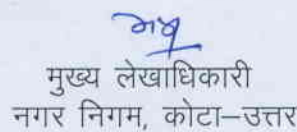 मुख्य लेखाधिकारी
नगर निगम, कोटा–उत्तर